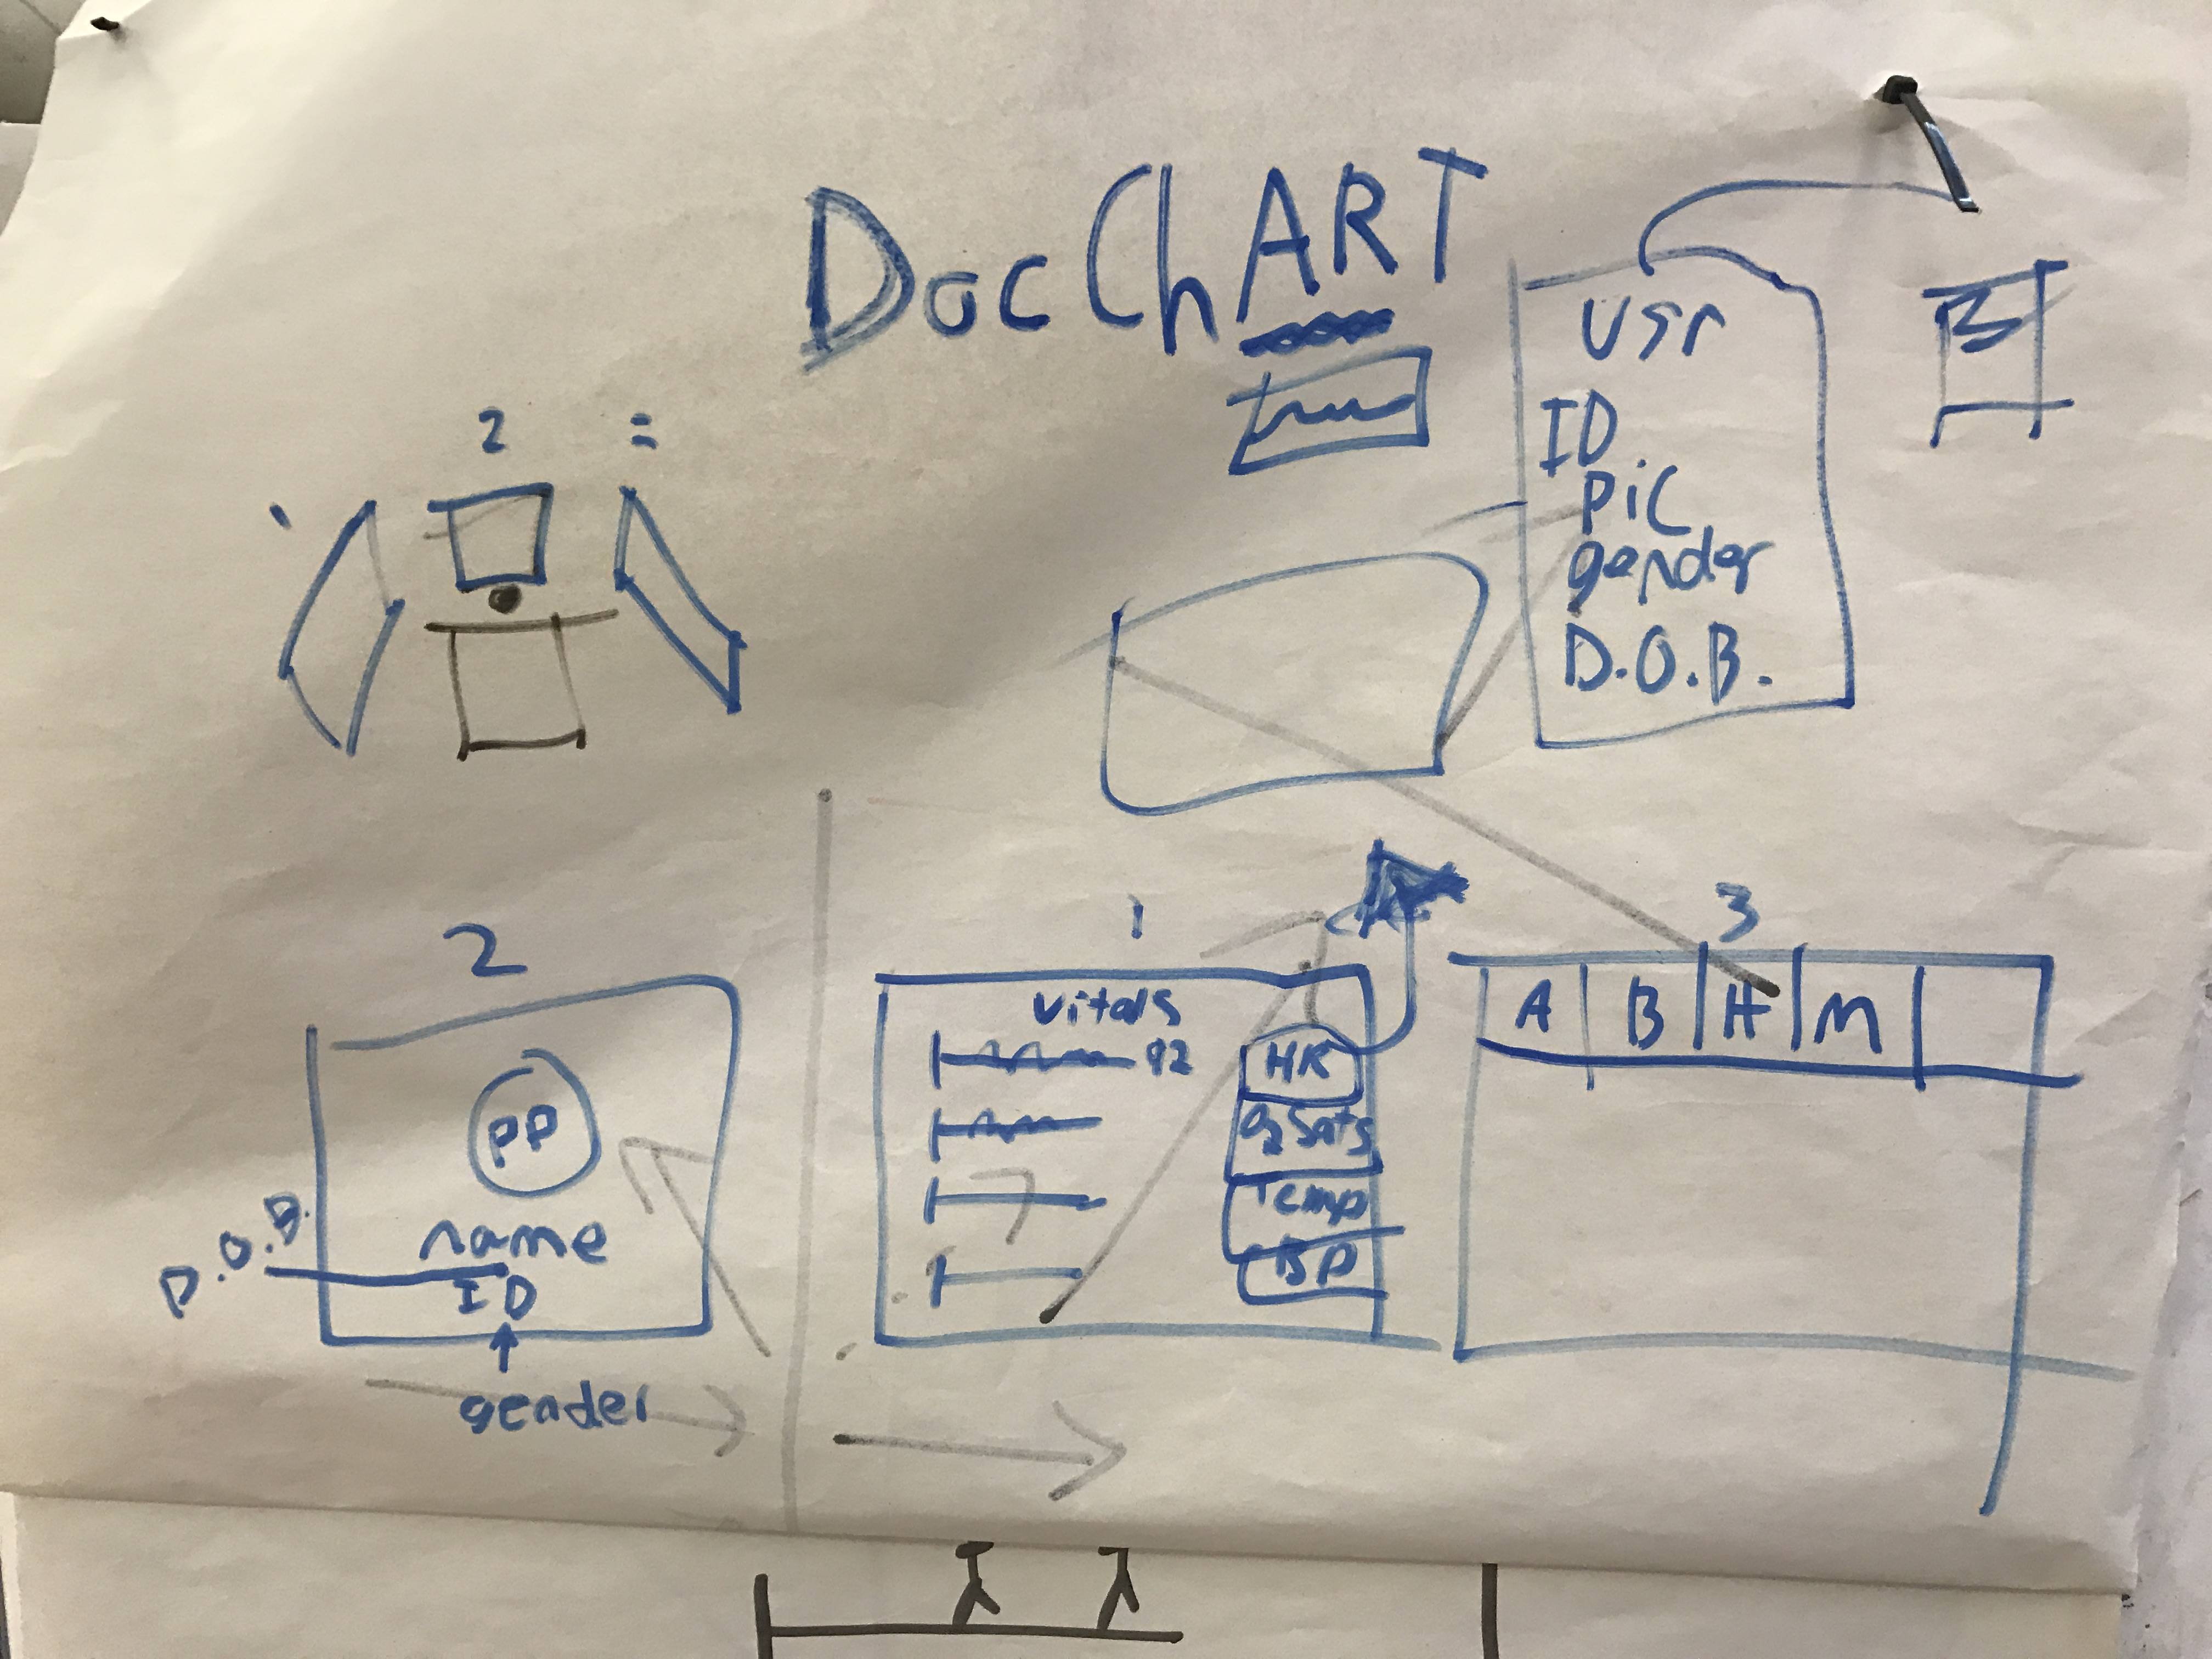 DocChART
usr
ID
PiC
gender
D.O.B.
2
2
PP
name
D.O.B.
ID
gender
1
vitals
92
HR
O2 Sats
Temp
BP
3
A B H M